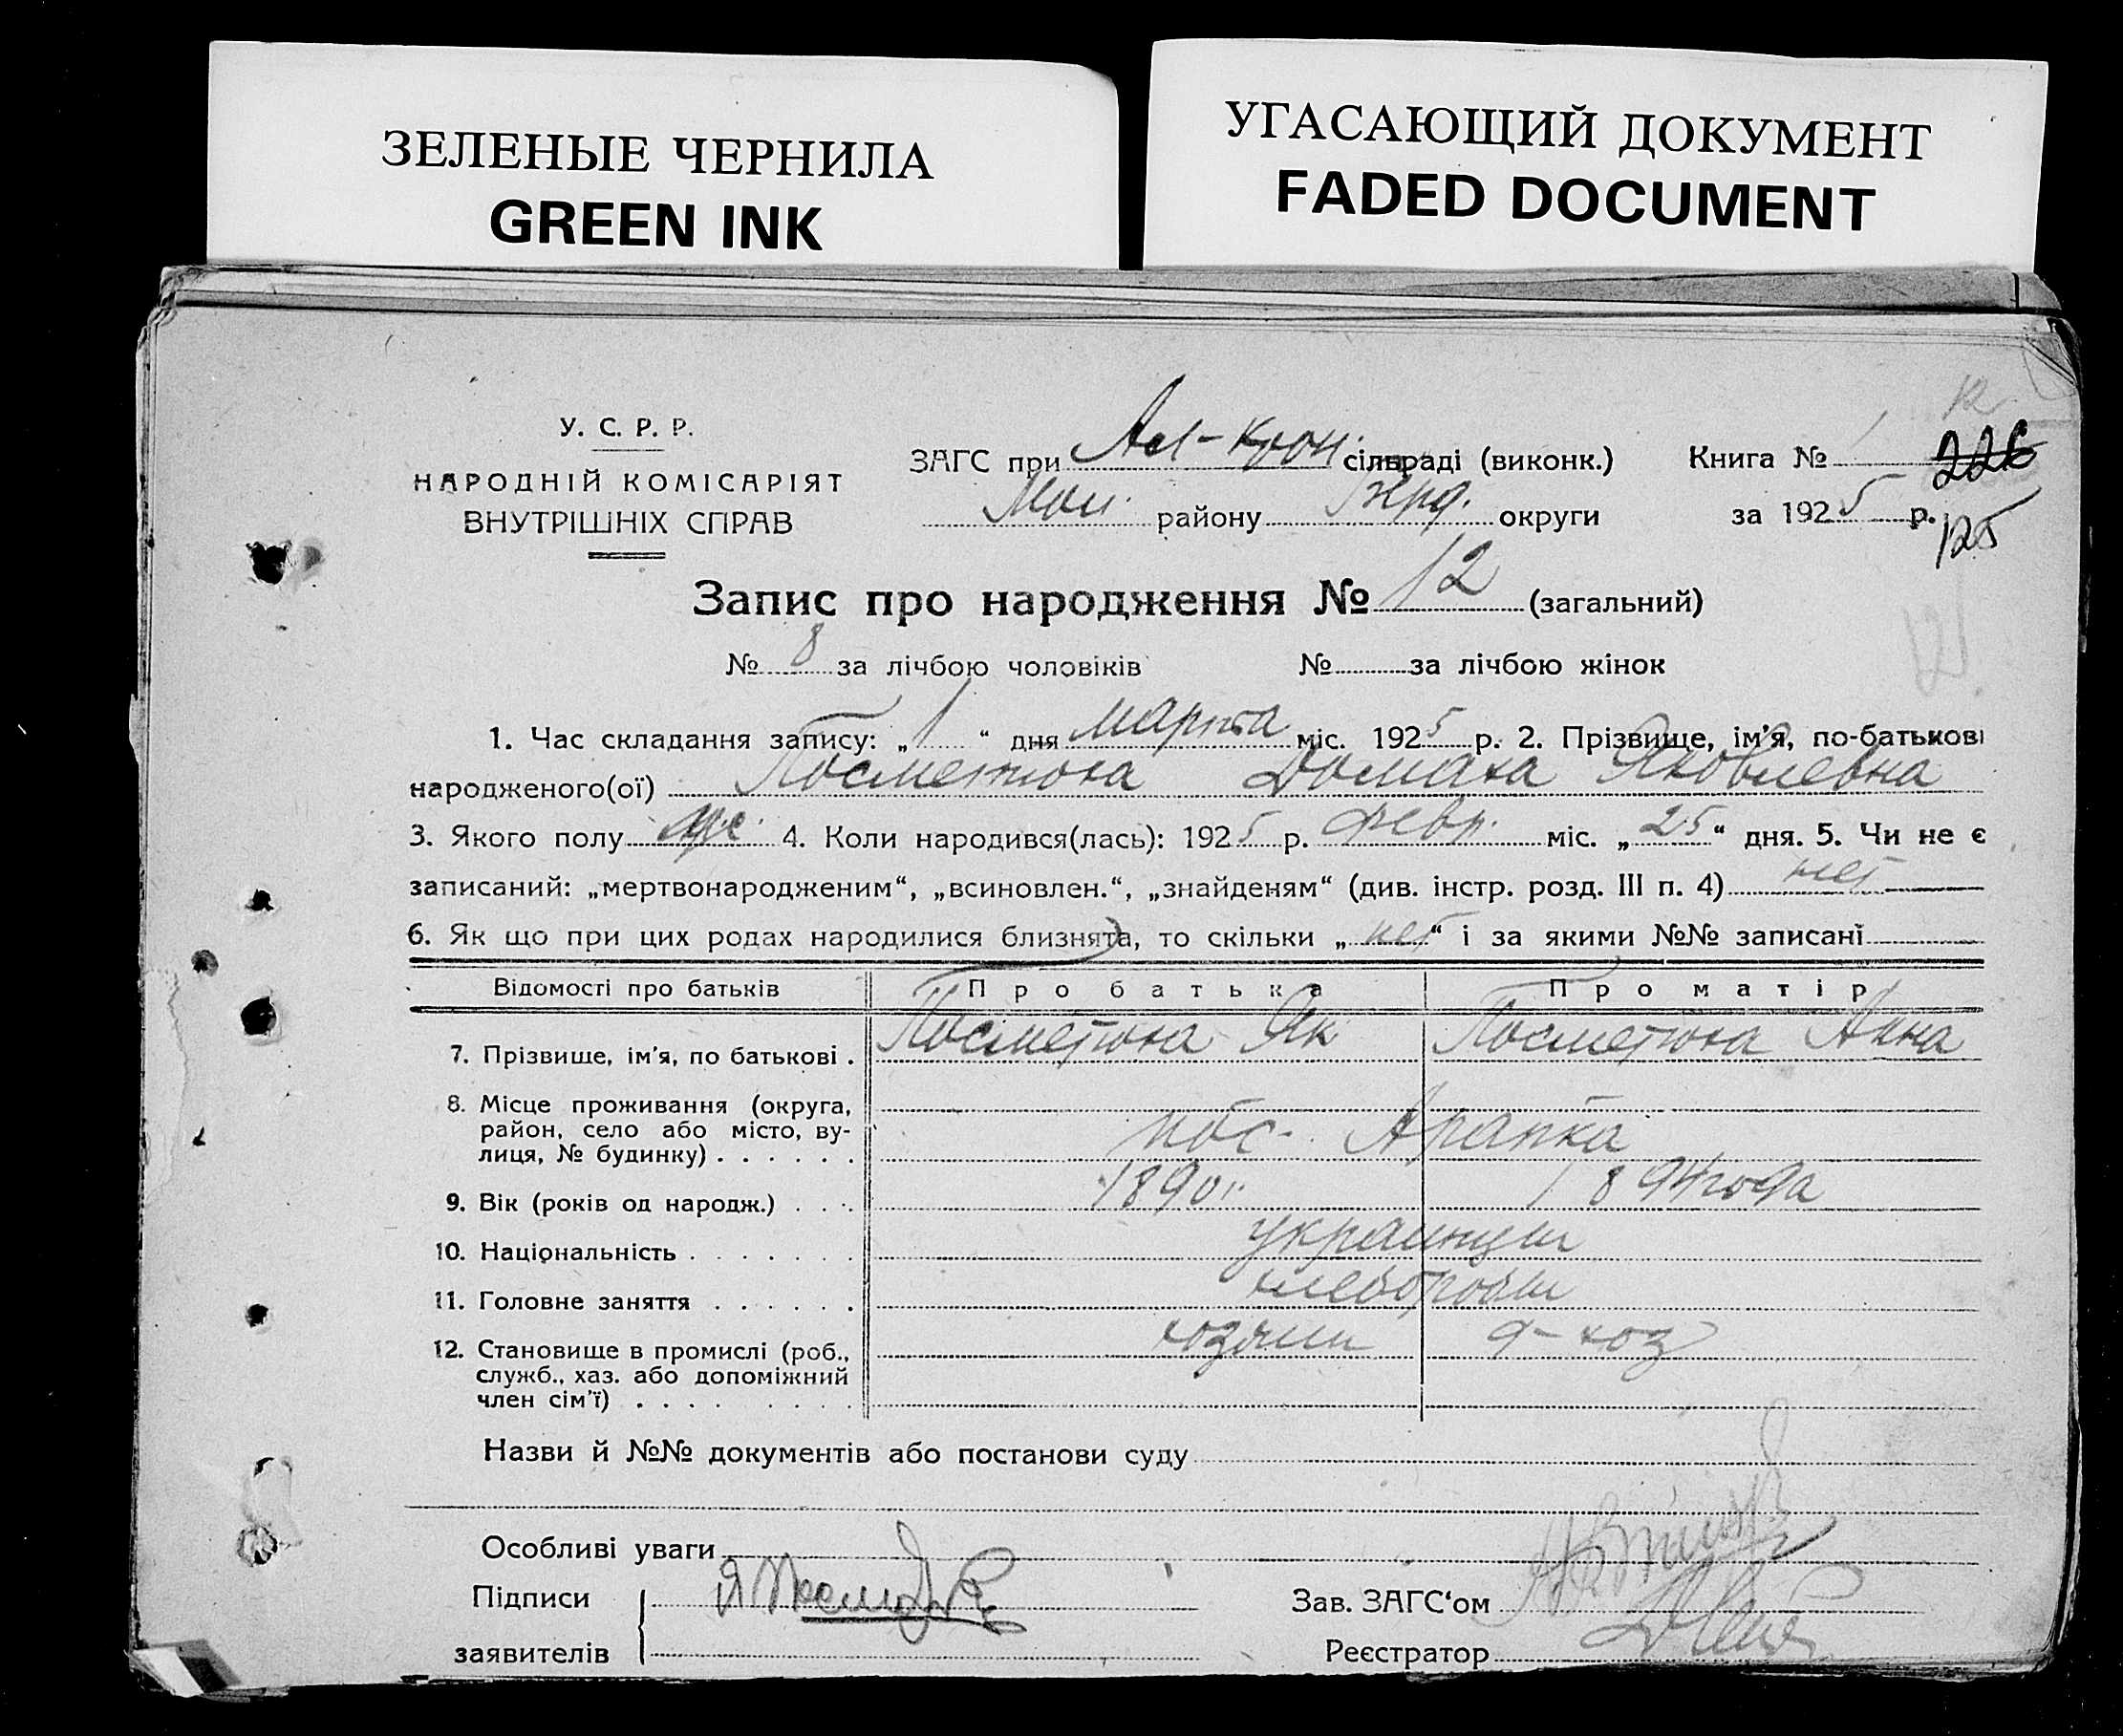 ЗЕЛЕНЫЕ ЧЕРНИЛА
GREEN INK
УГАСАЮЩИЙ ДОКУМЕНТ
FADED DOCUMENT
У. С. Р. Р.
НАРОДНІЙ КОМІСАРІЯТ
ВНУТРІШНІХ СПРАВ
ЗАГС при сільраді (виконк.)
району округи
Книга № 1 226
за 1925 р.
125
Запис про народження № 12 (загальний)
№ 8 за лічбою чоловіків № за лічбою жінок
1. Час складання запису: „ 1 “ дня марта міс. 1925 р. 2. Прізвище, ім’я, по-батькові
народженого(ої) Посметюха Домаха Яковлевна
3. Якого полу 4. Коли народився(лась): 1925 р. февр. міс. „ 25 “ дня. 5. Чи не є
записаний: „мертвонародженим“, „всиновлен.“, „знайденям“ (див. інстр. розд. III п. 4) нет
6. Як що при цих родах народилися близнята, то скільки „ нет “ і за якими №№ записані
Відомості про батьків Про батька Про матір
7. Прізвище, ім’я, по батькові . Посметюха Як Посметюха Анна
8. Місце проживання (округа,
район, село або місто, ву-
лиця, № будинку) . . . . . . Арапка
9. Вік (років од народж.) . . . 1890 г. 1894 года
10. Національність . . . . . . украинцы
11. Головне заняття . . . . . . хлеборобы
12. Становище в промислі (роб.,
служб., хаз. або допоміжний
член сім’ї) . . . . . . . . хозяин д-хоз
Назви й №№ документів або постанови суду
Особливі уваги
Підписи
заявителів
Зав. ЗАГС‘ом
Реєстратор